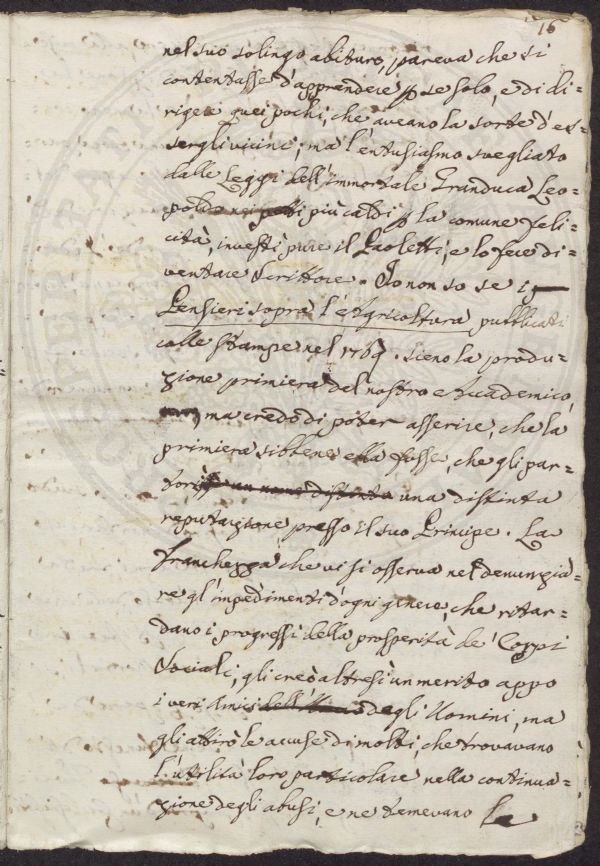 16
nel suo solingo abituro, pareva che si
contentasse d'apprendere p se solo, e di di=
rigere quei pochi, che aveano la sorte d'es=
sergli vicini; ma l'entusiasmo svegliato
dalle Leggi dell'immortale Granduca Leo=
poldo nei petti più caldi p la comune feli=
cità, investì pure il Paoletti, e lo fece di=
ventare Scrittore. Io non so se i
Pensieri sopra l'Agricoltura pubblicati
colle Stampe nel 1769. sieno la produ=
zione primiera del nostro Accademico,
ma credo di poter asserire, che la
primiera sibbene ella fusse, che gli par=
torisse un nome distinto una distinta
reputazione presso il suo Principe. La
franchezza che vi si osserva nel denunzia=
re gl'impedimenti d'ogni genere, che ritar=
dano i progressi della prosperità de' Corpi
Sociali, gli creò altresì un merito appo
i veri Amici dell' degli Uomini, ma
gli attirò le accuse di molti, che trovavano
l'utilità loro particolare nella continua=
zione degli abusi, e ne temevano la